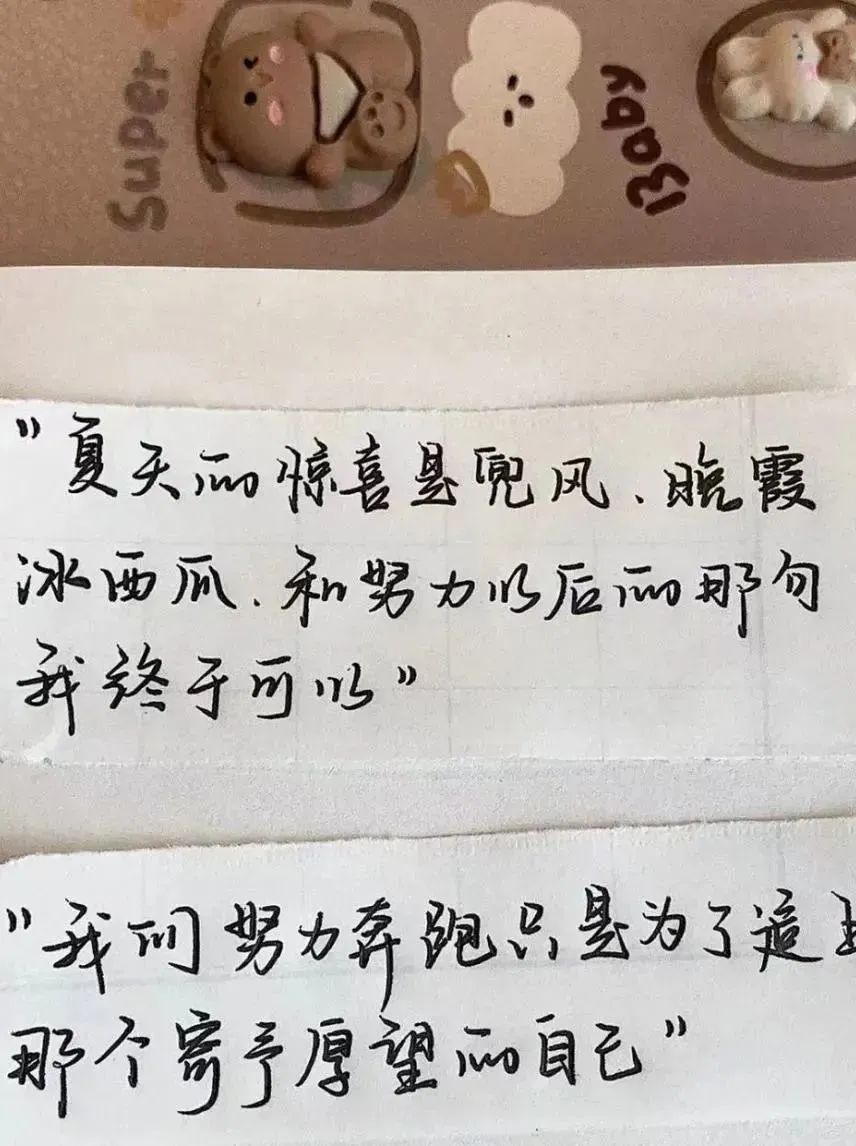 Super
Baby
"夏天的惊喜是兜风、晚霞
冰西瓜、和努力以后的那句
我终于可以"
"我们努力奔跑只是为了追
那个寄予厚望的自己"